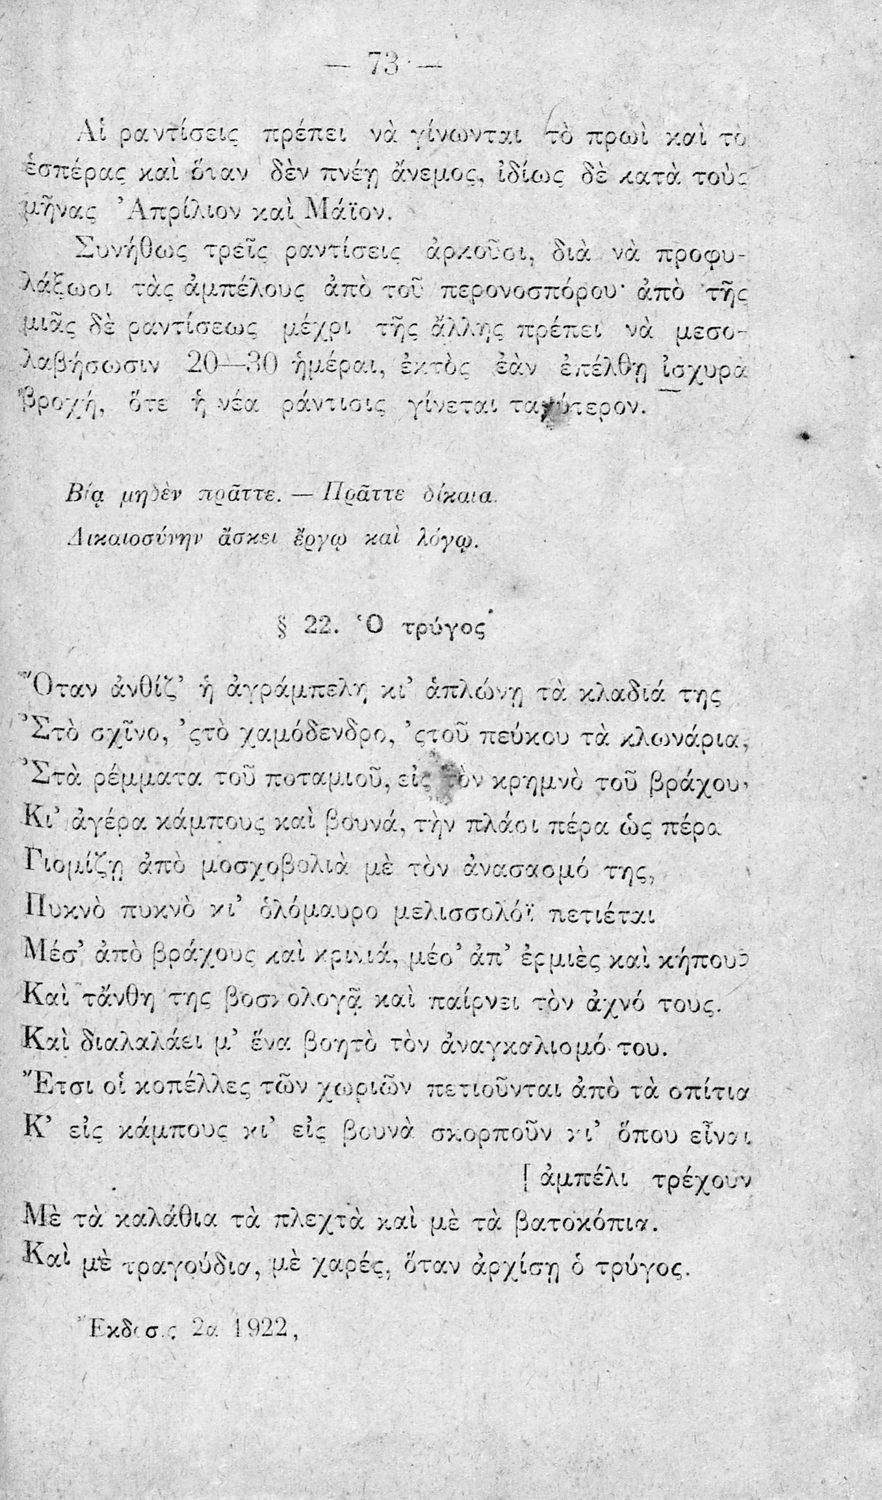 — 73 —
Αἱ ραντίσεις πρέπει νὰ γίνωνται τὸ πρωῒ καὶ τὸ
ἑσπέρας καὶ ὅταν δὲν πνέῃ ἄνεμος, ἰδίως δὲ κατὰ τοὺς
μῆνας Ἀπρίλιον καὶ Μάϊον.
Συνήθως τρεῖς ραντίσεις ἀρκοῦσι, διὰ νὰ προφυ-
λάξωσι τὰς ἀμπέλους ἀπὸ τοῦ περονοσπόρου· ἀπὸ τῆς
μιᾶς δὲ ραντίσεως μέχρι τῆς ἄλλης πρέπει νὰ μεσο-
λαβήσωσιν 20—30 ἡμέραι, ἐκτὸς ἐὰν ἐπέλθῃ ἰσχυρὰ
βροχή, ὅτε ἡ νέα ράντισις γίνεται ταχύτερον.
Βίᾳ μηδὲν πρᾶττε. — Πρᾶττε δίκαια.
Δικαιοσύνην ἄσκει ἔργῳ καὶ λόγῳ.
§ 22. Ὁ τρύγος
Ὅταν ἀνθίζ’ ἡ ἀγράμπελη κι’ ἁπλώνῃ τὰ κλαδιά της
Ἐτὸ σχῖνο, ’ςτὸ χαμόδενδρο, ’ςτοῦ πεύκου τὰ κλωνάρια,
’Στὰ ρέμματα τοῦ ποταμιοῦ, εἰς τὸν κρημνὸ τοῦ βράχου,
Κι’ ἀγέρα κάμπους καὶ βουνά, τὴν πλάσι πέρα ὡς πέρα
Γιομίζῃ ἀπὸ μοσχοβολιὰ μὲ τὸν ἀνασασμό της,
Πυκνὸ πυκνὸ κι’ ὁλόμαυρο μελισσολόϊ πετιέται
Μέσ’ ἀπὸ βράχους καὶ κρινιά, μέσ’ ἀπ’ ἐρμιὲς καὶ κήπους
Καὶ τἄνθη της βοσκολογᾷ καὶ παίρνει τὸν ἀχνό τους.
Καὶ διαλαλάει μ’ ἕνα βοητὸ τὸν ἀναγκαλισμό του.
Ἔτσι οἱ κοπέλλες τῶν χωριῶν πετιοῦνται ἀπὸ τὰ σπίτια
Κ’ εἰς κάμπους κι’ εἰς βουνὰ σκορποῦν κι’ ὅπου εἶναι
[ ἀμπέλι τρέχουν
Μὲ τὰ καλάθια τὰ πλεχτὰ καὶ μὲ τὰ βατοκόπια.
Καὶ μὲ τραγούδια, μὲ χαρές, ὅταν ἀρχίσῃ ὁ τρύγος.
Ἔκδοσις 2α 1922,